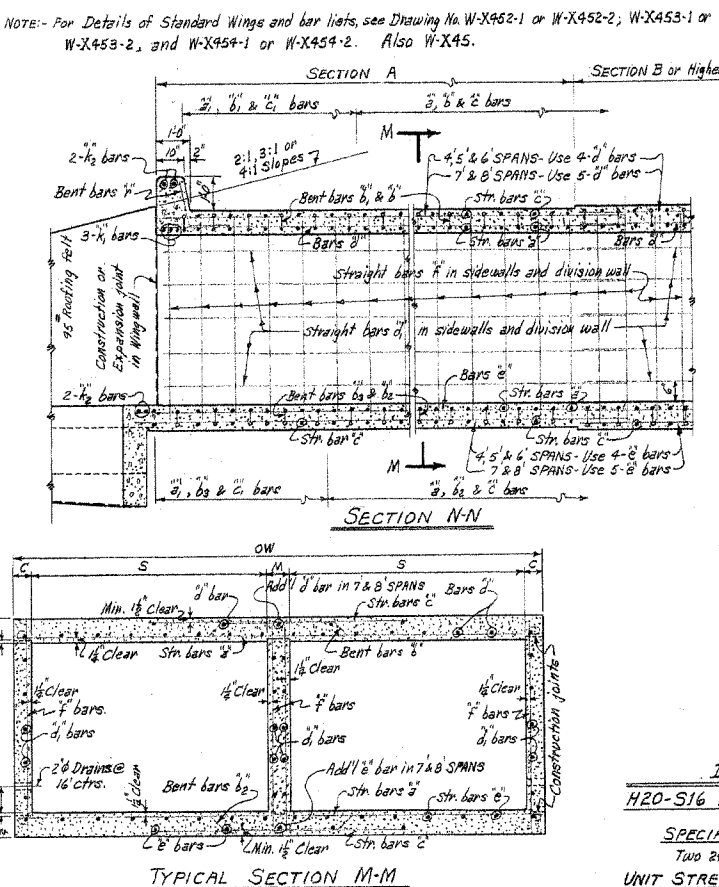 NOTE:- For Details of Standard Wings and bar lists, see Drawing No. W-X452-1 or W-X452-2; W-X453-1 or
W-X453-2, and W-X454-1 or W-X454-2. Also W-X45.
SECTION A
SECTION B or Higher
"a₁", "b₁" & "c₁" bars
"a", "b" & "c" bars
1'-0"
10" 2"
M
2-"k₂" bars
2:1, 3:1 or
4:1 Slopes
4', 5' & 6' SPANS - Use 4-"d" bars
7' & 8' SPANS - Use 5-"d" bars
Bent bars "r"
Bent bars "b₁" & "b"
Str. bars "c"
3-"k₁" bars
Bars "d"
Str. bars "a"
Bars "d"
45 Roofing Felt
Construction or
Expansion joint
in Wingwall
Straight bars "f" in sidewalls and division wall
Straight bars "d₁" in sidewalls and division wall
Bars "e"
2-"k₂" bars
Bent bars "b₃" & "b₂"
Str. bars "a"
Str. bar "c"
Str. bars "c"
M
4', 5' & 6' SPANS - Use 4-"e" bars
7' & 8' SPANS - Use 5-"e" bars
"a₁", "b₃" & "c₁" bars
"a", "b₂" & "c" bars
SECTION N-N
OW
C S M S C
"d" bar
Add'l "d" bar in 7' & 8' SPANS
Bars "d"
Min. 1½" Clear
Str. bars "c"
1¼" Clear
Str. bars "a"
Bent bars "b"
1¼" Clear
1¼" Clear
1¼" Clear
1¼" Clear
"f" bars.
"f" bars
"f" bars
"d₁" bars
"d₁" bars
"d₁" bars
Construction joints
2"ϕ Drains @
16' ctrs.
1¼" Clear
Add'l "e" bar in 7' & 8' SPANS
Bent bars "b₂"
Str. bars "a"
Str. bars "e"
"e" bars
Min. 1½" Clear
Str. bars "c"
TYPICAL SECTION M-M
H20-S16
SPECIF
UNIT STRE